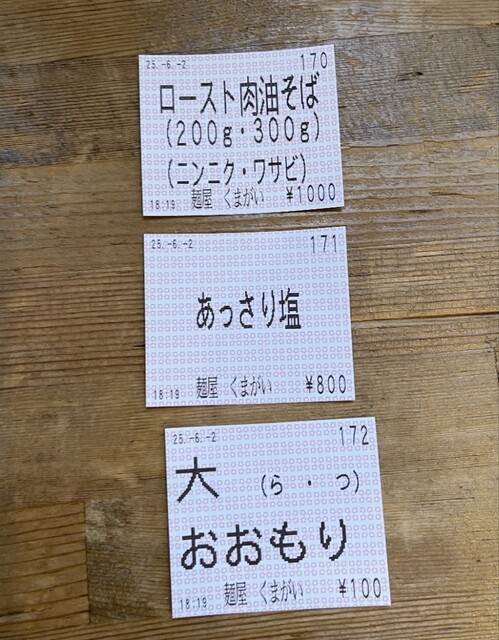 25.-6.-2 170
ロースト肉油そば
(200g・300g)
(ニンニク・ワサビ)
18:19 麺屋 くまがい ¥1000
25.-6.-2 171
あっさり塩
18:19 麺屋 くまがい ¥800
25.-6.-2 172
大 (ら・つ)
おおもり
18:19 麺屋 くまがい ¥100